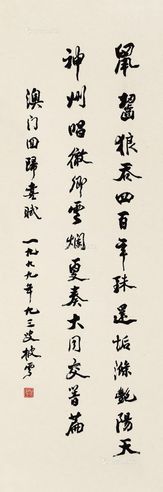 鼠齧狼吞四百年珠還垢滌艷陽天
神州昭徹卿雲爛夏奏大同交響篇
澳门回歸喜賦
一九九九年九三叟披雲